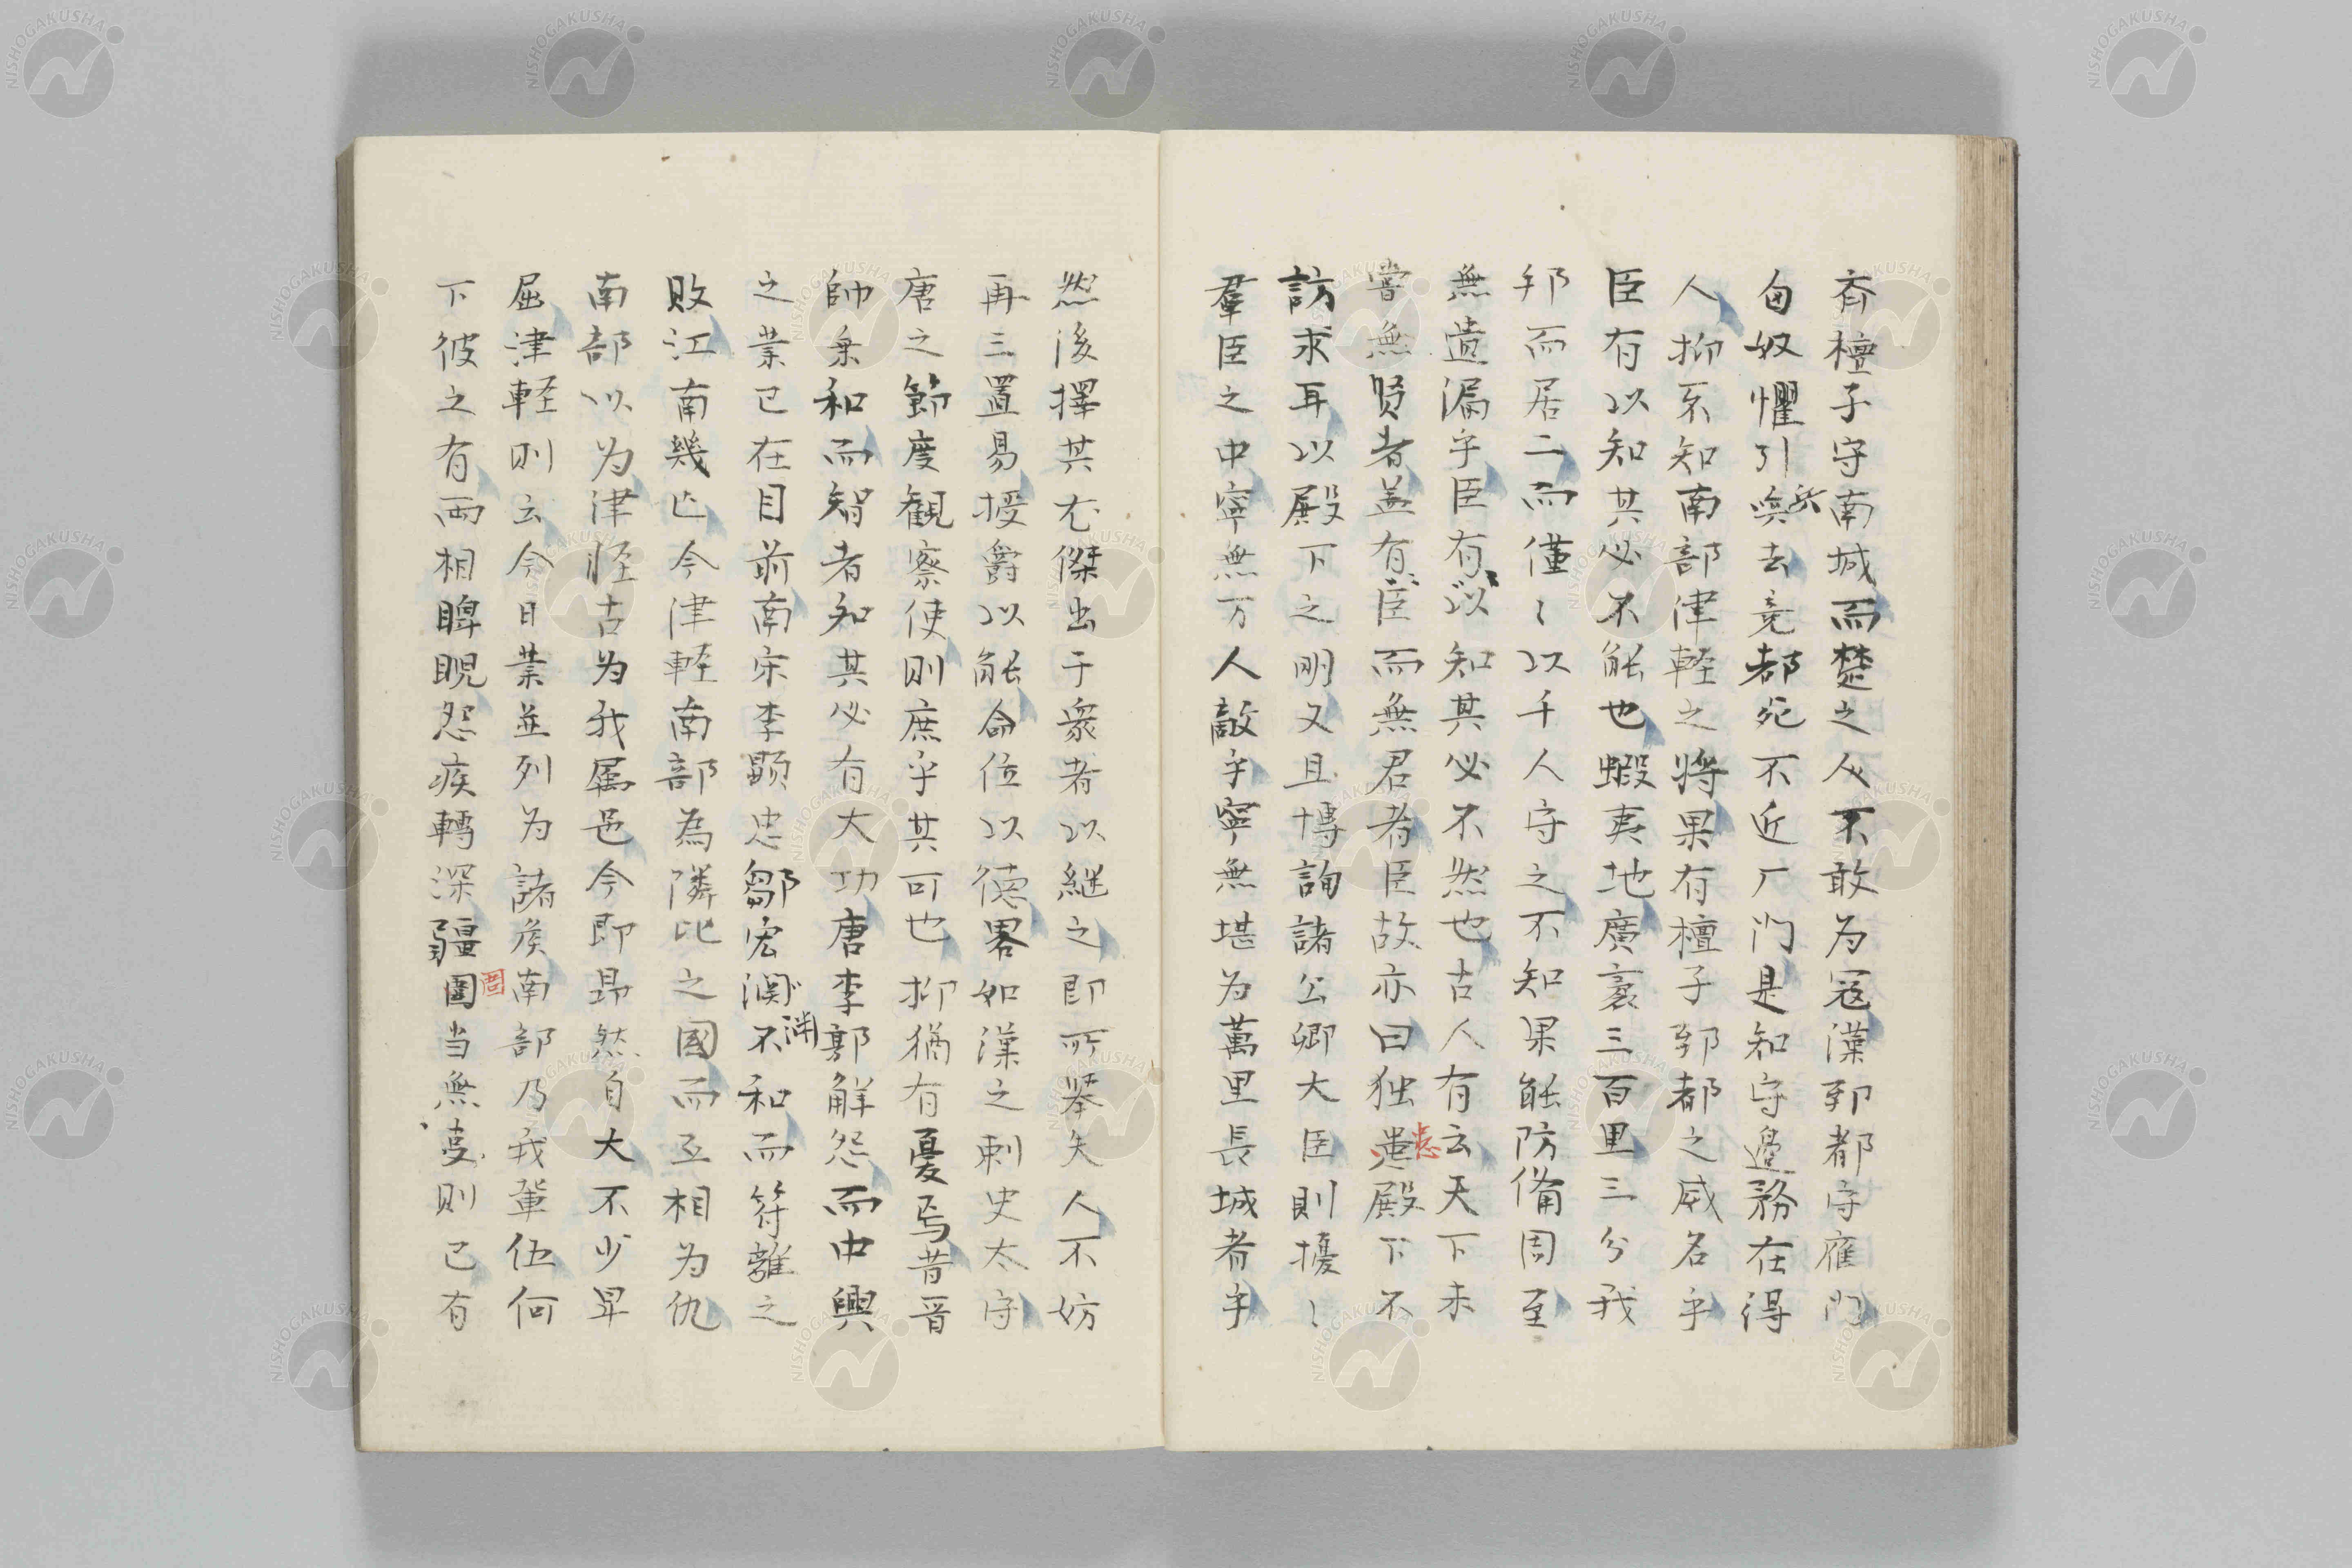 斉檀子守南城而楚之人不敢为冦漢郅都守雁門
匈奴懼引兵去竟都死不近厂門是知守邊務在得
人抑不知南部津軽之将果有檀子郅都之威名乎
臣有以知其必不能也蝦夷地廣袤三百里三分我
邦而居二而僅〻以千人守之不知果能防備周至
無遺漏乎臣有以知其必不然也古人有云天下未
嘗無賢者盖有臣而無君者臣故亦曰独患殿下不
訪求耳以殿下之明又且博詢諸公卿大臣則擾〻
羣臣之中寧無万人敵乎寧無堪为萬里長城者乎
然後擇其尤傑出于衆者以継之即所挙失人不妨
再三置易授爵以能命位以德畧如漢之刺史太守
唐之節度観察使則庶乎其可也抑猶有憂焉昔晋
帥乗和而智者知其必有大功唐李郭解怨而中興
之業已在目前南宋李顕忠鄒宏渊不和而符離之
敗江南幾亡今津軽南部為隣比之國而互相为仇
南部以为津軽古为我属邑今即昻然自大不少畀
屈津軽則云今日業並列为諸矦南部乃我輩伍何
下彼之有両相睥睨怨疾轉深疆圉当無变則已有